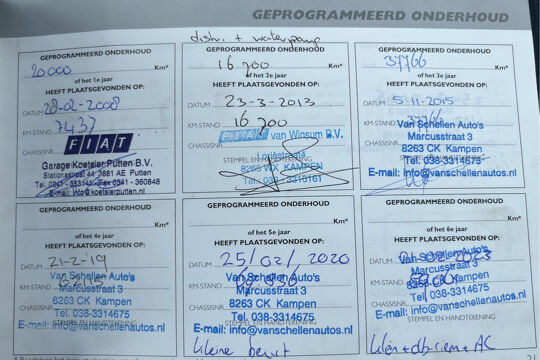 GEPROGRAMMEERD ONDERHOUD
distr. + waterpomp
GEPROGRAMMEERD ONDERHOUD
20000 Km*
of het 1e jaar
HEEFT PLAATSGEVONDEN OP:
DATUM 28-02-2008
KM-STAND 7437
CHASSISNR.
FIAT
Garage Koetsier Putten B.V.
Stationsstraat 44 3881 AE Putten
E-mail: info@koetsierputten.nl
GEPROGRAMMEERD ONDERHOUD
16 700 Km*
of het 2e jaar
HEEFT PLAATSGEVONDEN OP:
DATUM 23-3-2013
KM-STAND 16 700
CHASSISNR. FIAT van Winsum B.V.
STEMPEL EN HANDTEKENING
8265 WX KAMPEN
Tel: 038-3316161
GEPROGRAMMEERD ONDERHOUD
37766 Km*
of het 3e jaar
HEEFT PLAATSGEVONDEN OP:
DATUM 5-11-2015
KM-STAND 37766
Van Schellen Auto's
Marcusstraat 3
CHASSISNR. 8263 CK Kampen
Tel. 038-3314675
STEMPEL EN HANDTEKENING
E-mail: info@vanschellenautos.nl
GEPROGRAMMEERD ONDERHOUD
Km*
of het 4e jaar
HEEFT PLAATSGEVONDEN OP:
DATUM 21-2-'19
KM-STAND
Van Schellen Auto's
Marcusstraat 3
CHASSISNR. 8263 CK Kampen
Tel. 038-3314675
STEMPEL EN HANDTEKENING
E-mail: info@vanschellenautos.nl
GEPROGRAMMEERD ONDERHOUD
Km*
of het 5e jaar
HEEFT PLAATSGEVONDEN OP:
DATUM 25/02/2020
KM-STAND
Van Schellen Auto's
Marcusstraat 3
CHASSISNR. 8263 CK Kampen
Tel. 038-3314675
STEMPEL EN HANDTEKENING
E-mail: info@vanschellenautos.nl
kleine beurt
GEPROGRAMMEERD ONDERHOUD
Km*
of het 6e jaar
HEEFT PLAATSGEVONDEN OP:
DATUM
KM-STAND
Van Schellen Auto's
Marcusstraat 3
CHASSISNR. 8263 CK Kampen
Tel. 038-3314675
STEMPEL EN HANDTEKENING
E-mail: info@vanschellenautos.nl
21